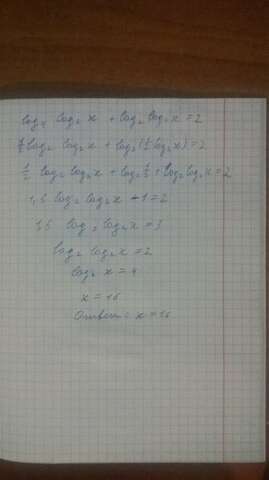 log₄ log₂ x + log₂ log₄ x = 2
½ log₂ log₂ x + log₂(½ log₂ x) = 2
½ log₂ log₂ x + log₂ ½ + log₂ log₂ x = 2
1,5 log₂ log₂ x - 1 = 2
1,5 log₂ log₂ x = 3
log₂ log₂ x = 2
log₂ x = 4
x = 16
Ответ: x = 16